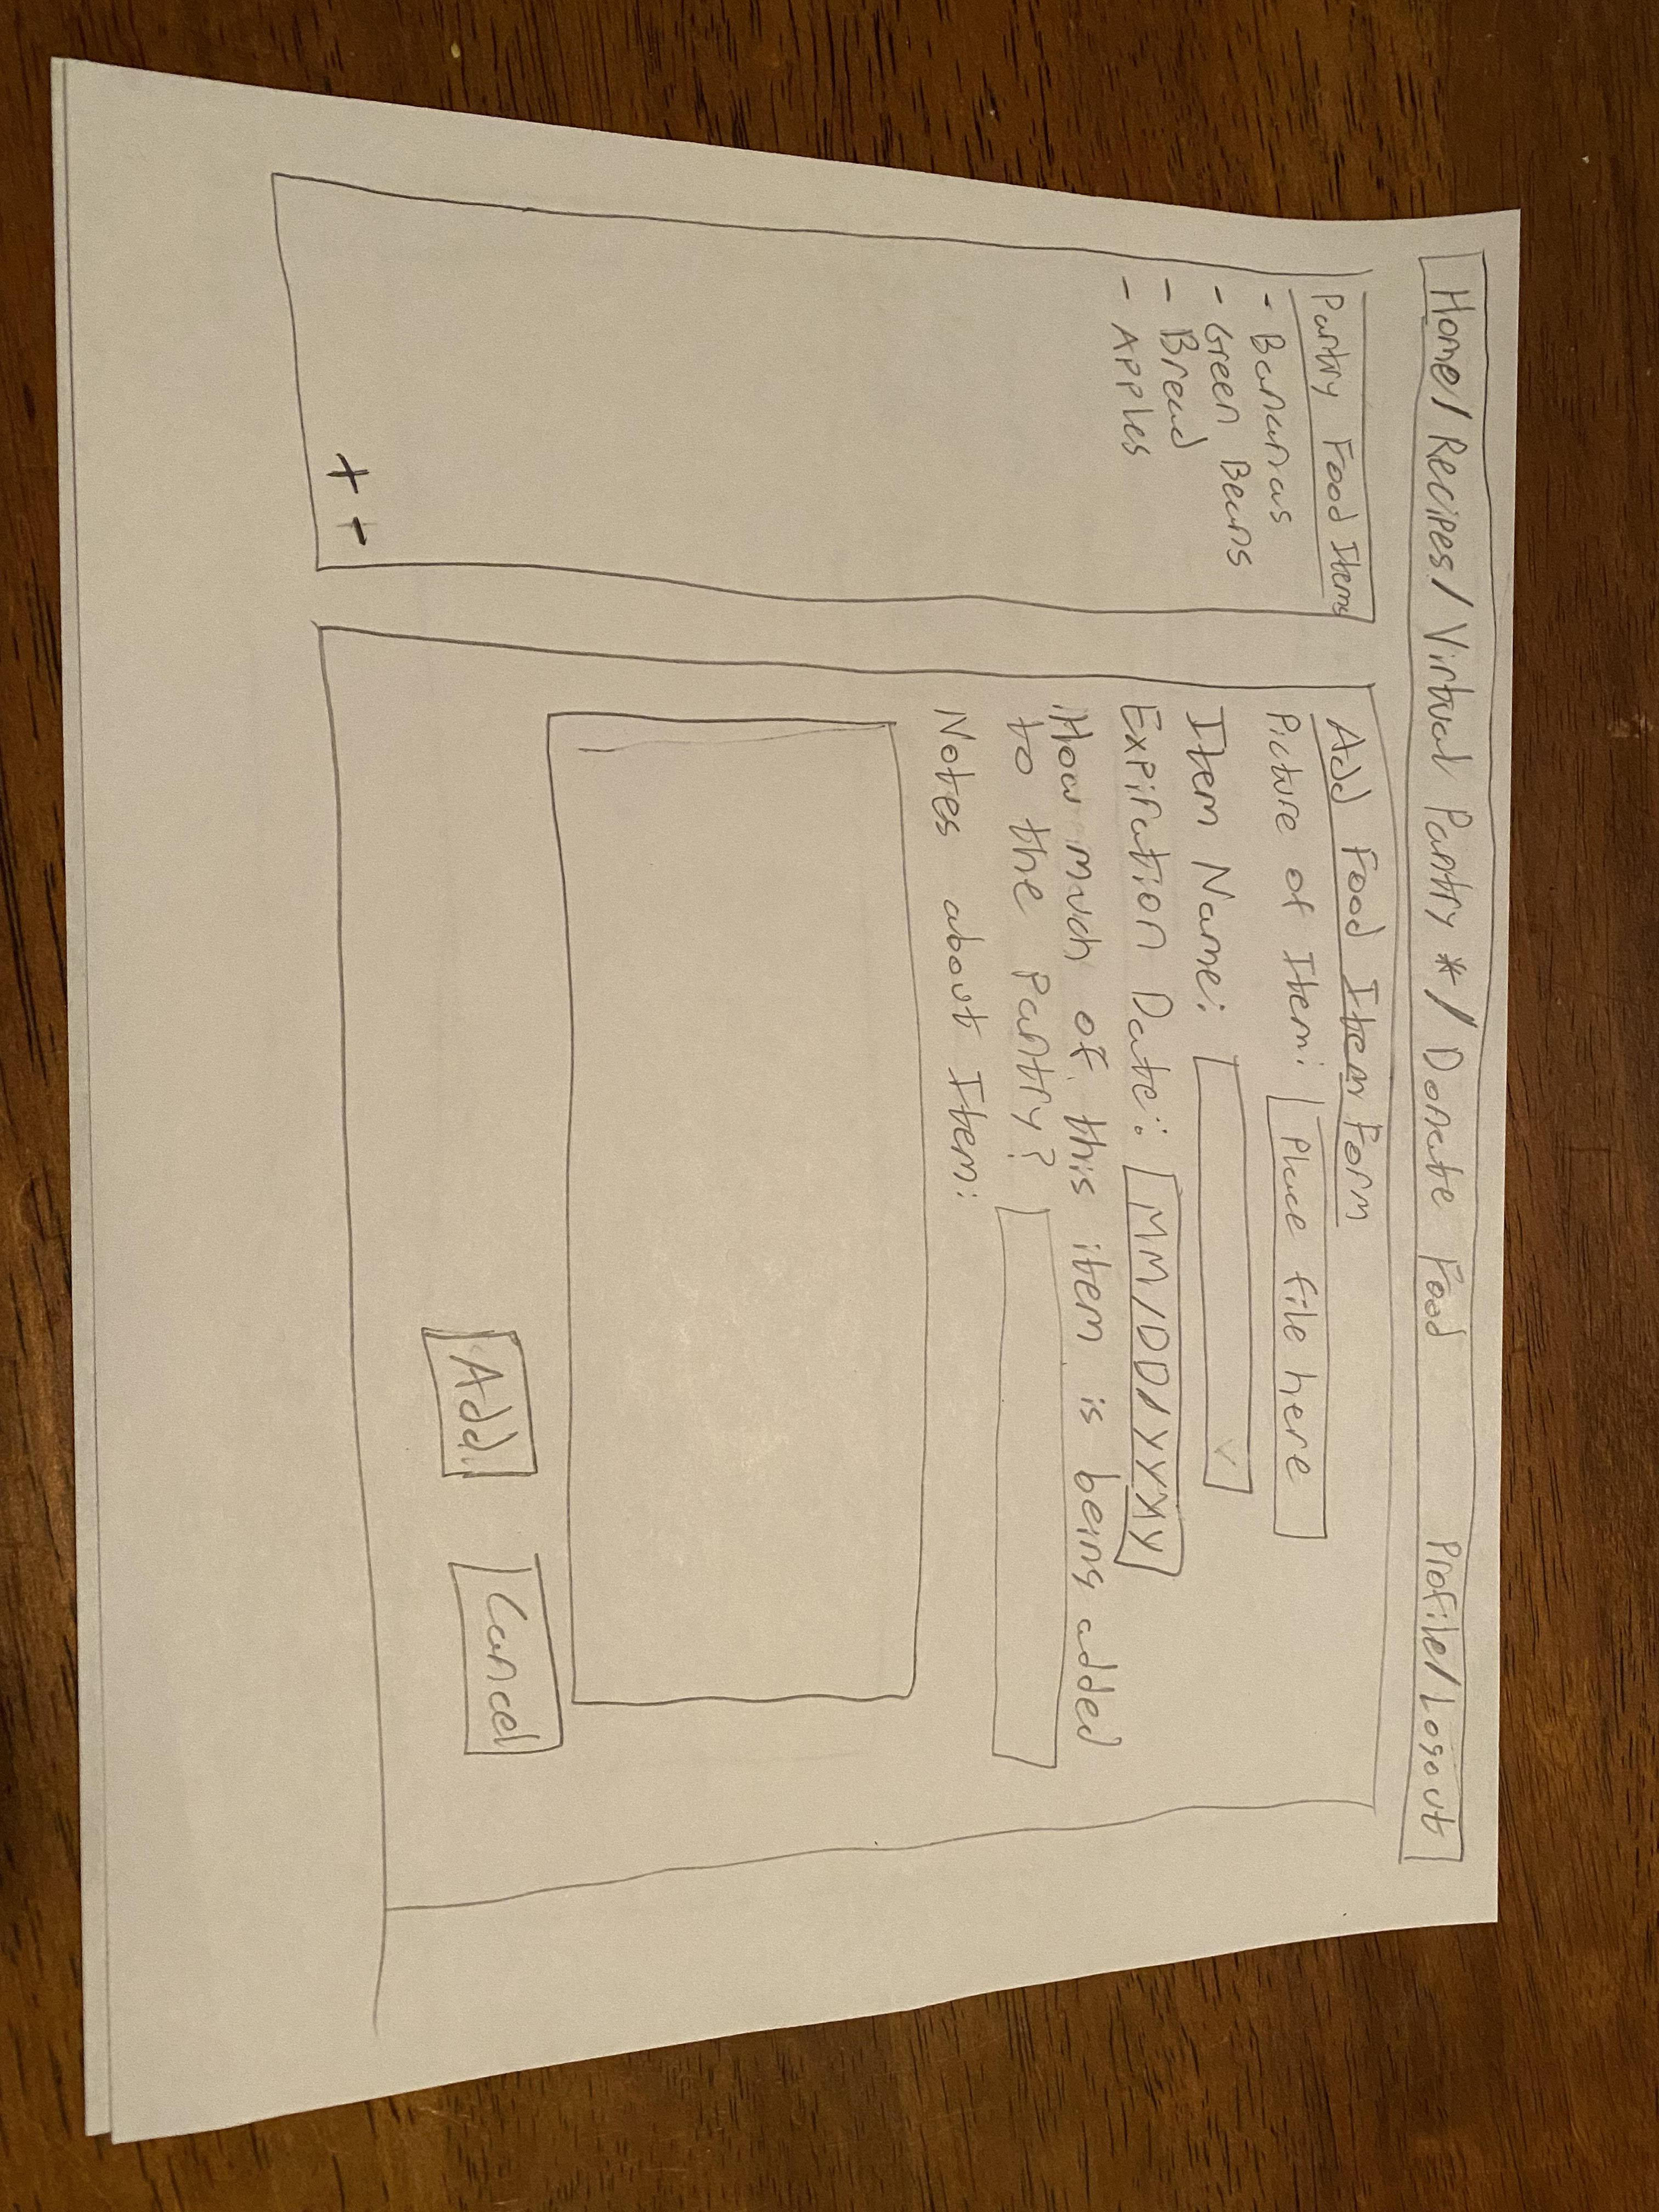 Home/ Recipes/ Virtual Pantry */ Donate Food Profile/ Logout
Pantry Food Items
- Bananas
- Green Beans
- Bread
- Apples
+ -
Add Food Item Form
Picture of Item: Place file here
Item Name:
Expiration Date: MM/DD/YYYY
How much of this item is being added
to the Pantry?
Notes about Item:
Add
Cancel